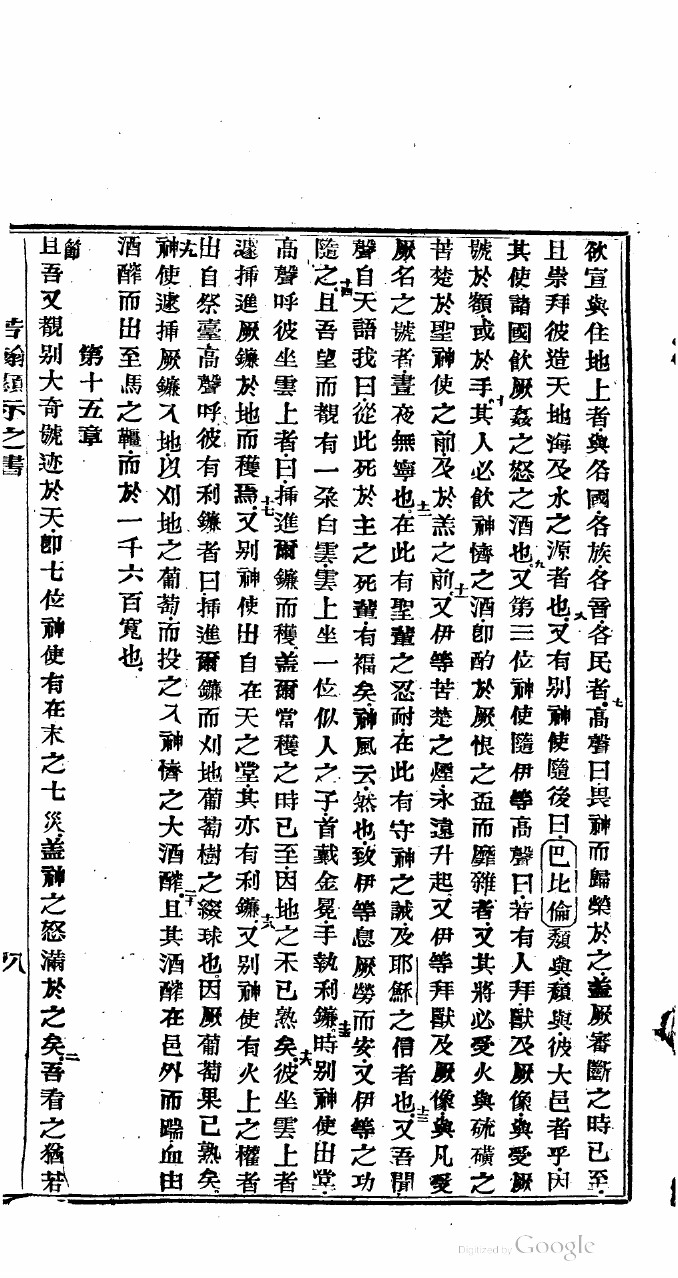 欲宣與住地上者與各國各族各音各民者七高聲曰畏神而歸榮於之蓋厥審斷之時已至
且祟拜彼造天地海及水之源者也八又有別神使隨後曰巴比倫頹與頹與彼大邑者乎因
其使諸國飲厥姦之怒之酒也九又第三位神使隨伊等高聲曰若有人拜獸及厥像與受厥
號於額或於手十其人必飲神懠之酒卽酌於厥恨之盃而靡雜者又其將必受火與硫磺之
苦楚於聖神使之前及於羔之前十一又伊等苦楚之煙永遠升起又伊等拜獸及厥像與凡受
厥名之號者晝夜無寧也十二在此有聖輩之忍耐在此有守神之誡及耶穌之信者也十三又吾聞
聲自天語我曰從此死於主之死輩有福矣神風云然也致伊等息厥勞而安又伊等之功
隨之十四且吾望而觀有一朶白雲雲上坐一位似人之子首戴金冕手執利鐮十五時別神使出堂
高聲呼彼坐雲上者曰揷進爾鐮而穫蓋爾當穫之時已至因地之禾已熟矣十六彼坐雲上者
遂揷進厥鐮於地而穫焉十七又別神使出自在天之堂其亦有利鐮十八又別神使有火上之權者
出自祭臺高聲呼彼有利鐮者曰揷進爾鐮而刈地葡萄樹之綴球也因厥葡萄果已熟矣
十九神使遂揷厥鐮入地以刈地之葡萄而投之入神懠之大酒醡二十且其酒醡在邑外而踹血由
酒醡而出至馬之韁而於一千六百寬也
第十五章
一節且吾又觀別大奇號迹於天卽七位神使有在末之七災蓋神之怒滿於之矣二吾看之猶若
若翰顯示之書
八
Digitized by Google